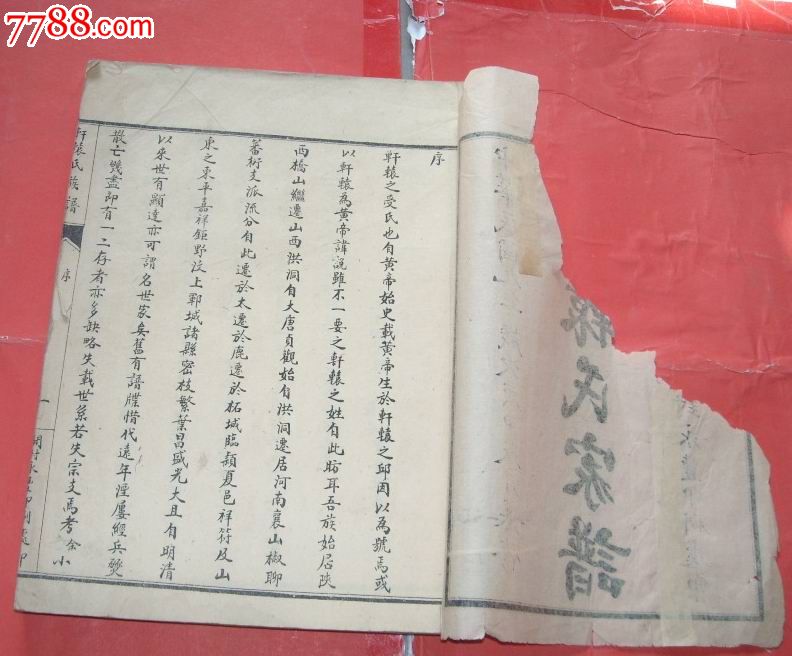 7788.com
序
軒轅之受氏也自黃帝始史載黃帝生於軒轅之邱因以為號焉或
以軒轅為黃帝諱說雖不一要之軒轅之姓自此昉耳吾族始居陝
西橋山繼遷山西洪洞自大唐貞觀始自洪洞遷居河南襄山椒聊
蕃衍支派流分自此遷於太遷於鹿遷於柘城臨潁夏邑祥符及山
東之東平嘉祥鉅野汶上鄆城諸縣密枝繁葉昌盛光大且自明清
以來世有顯達亦可謂名世家矣舊有譜牒惜代遠年湮屢經兵燹
散亡幾盡即有一二存者亦多缺略失載世系若失宗支焉考余小
軒轅氏族譜
序
一
氏家譜